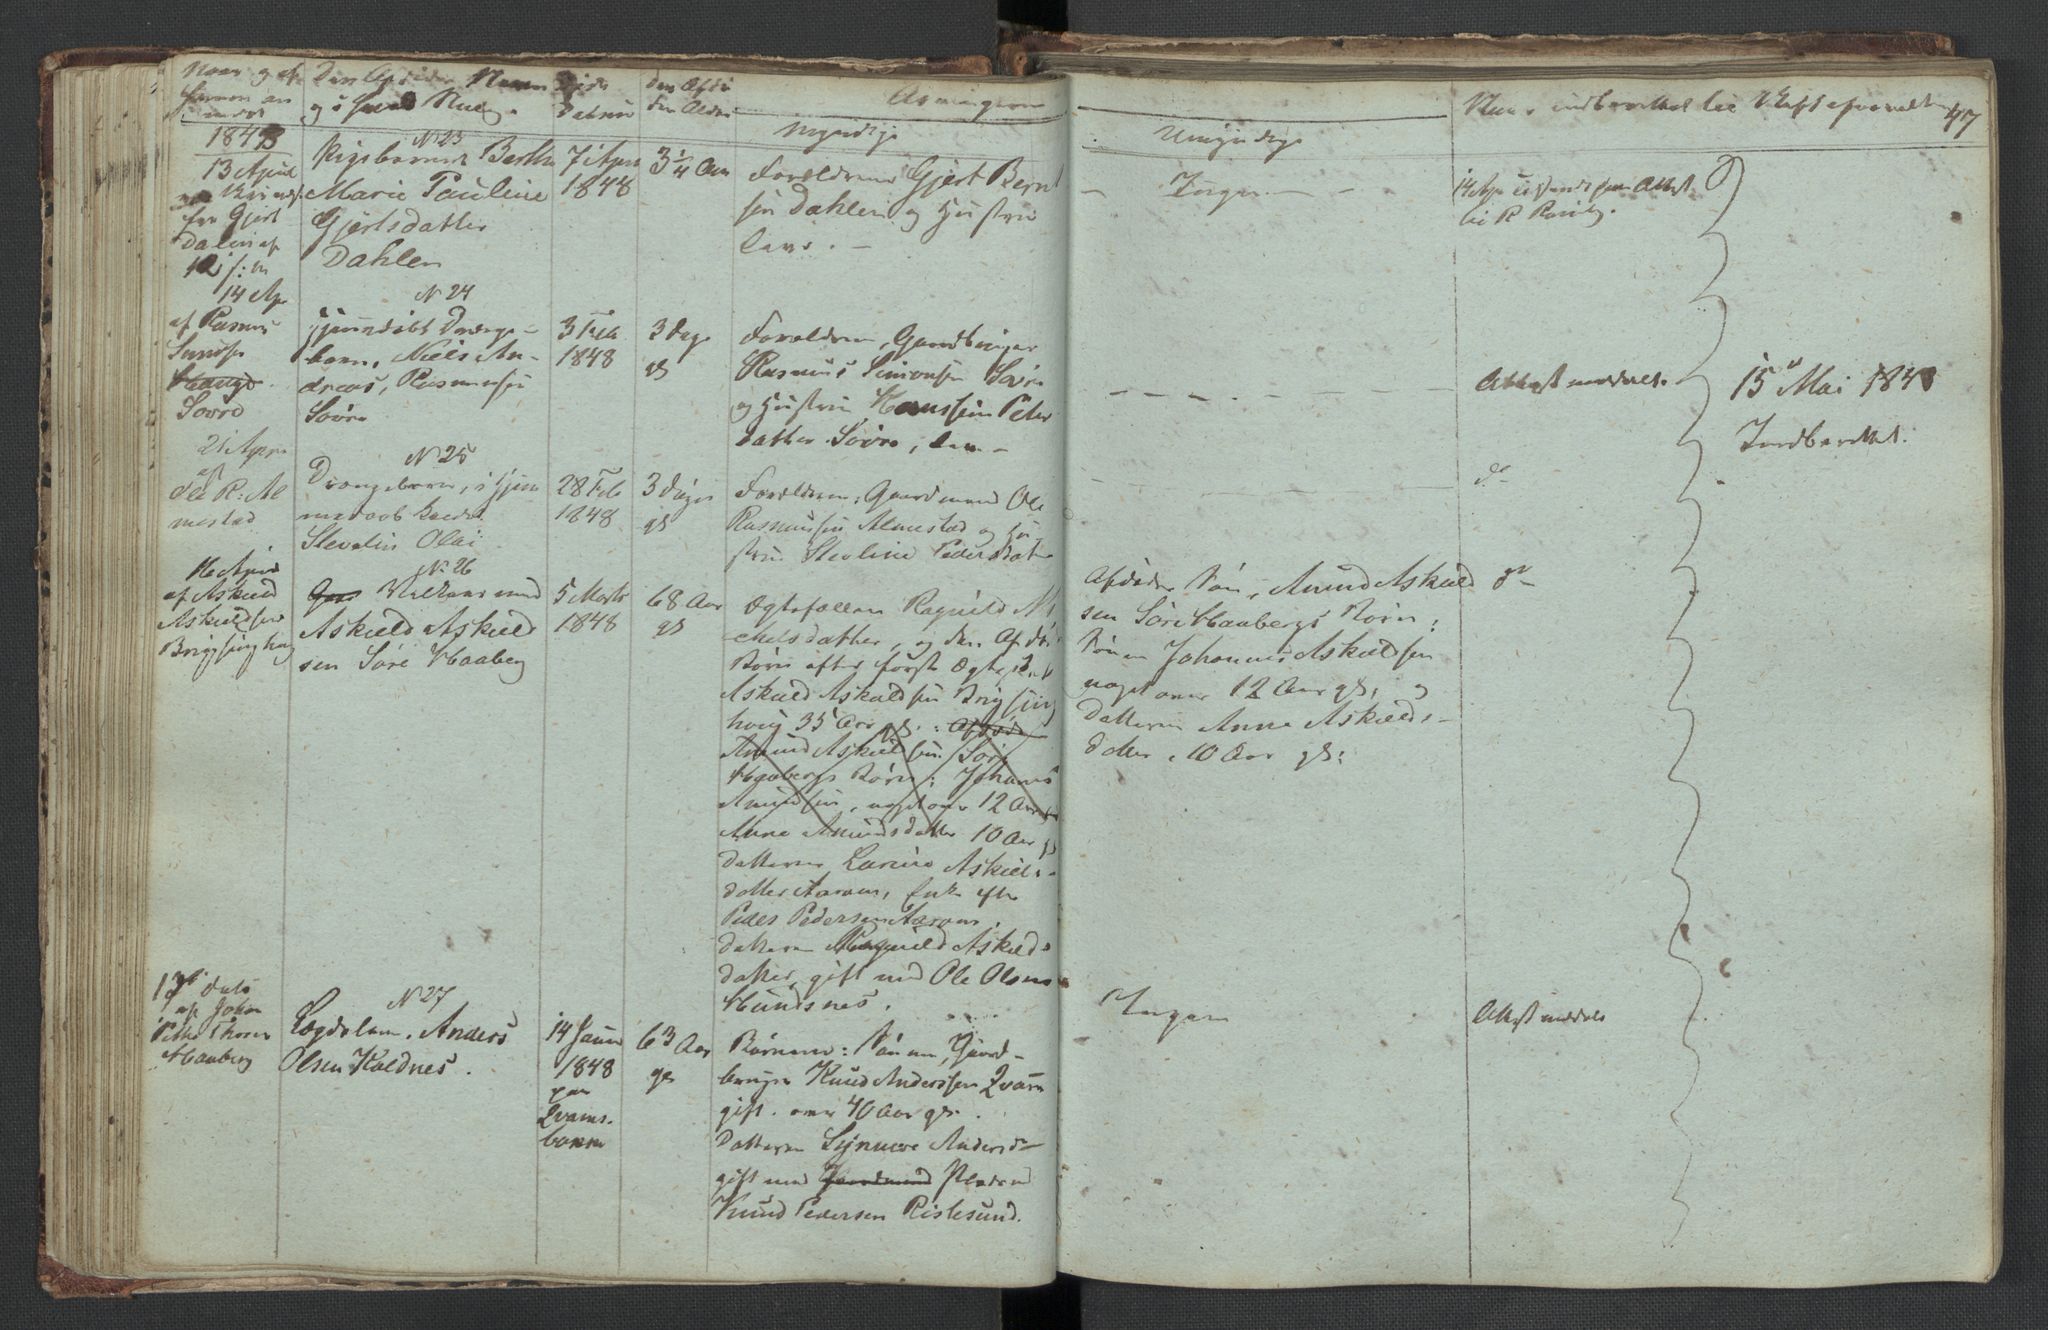 Naar og af
hvem an
meldt
Den Afdødes Navn
og i hvad
Døds
Datum
den Afdø
des Alder
Arvingerne
Myndige
Umyndige
Naar indberettet til Skifteforvalteren
47
1848
13 April
Gjert
Dalen af
12
No 23
Pigebarnet Berthe
Marie Pauline
Gjertsdatter
Dahlen
7 April
1848
3 1/4 Aar
Forældrene Gjert Bernt
sen Dahlen og Hustru
leve. –
– Ingen – –
14 Apr udstædt Attest
til R
14 Apr
af Rasmus
Simonsen
Hauge
Søvre
No 24
hjemdøbt Drenge-
barn, Niels An-
dreas, Rasmussen
Søvre
3 Feb
1848
3 Dage
gl
Forældrene, Gaardbruger
Rasmus Simonsen Søvre
og Hustru Peder
datter Søvre, leve –
Attest meddelt.
15de Mai 1848
Indberettet.
21 Apr
af
Ole R: Al
mestad
No 25
Drengebarn, i Hjem
medaab kaldt
Stevelin Olai
28 Feb
1848
3 Dage
gl
Forældrene: Gaardmand Ole
Rasmussen Almestad og Hu
stru Stevline Pedersdat
do
16 April
af Askield
Askieldsen
Bringsinghaug
No 26
Gaa Kaarmand
Askield Askield
sen Søre Haaberg
5 Marts
1848
68 Aar
gl
Ægtefællen Ragnild Mi
chelsdatter, og den Afdødes
Børn efter første Ægteskab
Askield Askieldsen Bringsing
houg 35 Aar gl.: Afdøde
Amund Askieldsen Søre
Haabergs Børn: Johannes
Amundsen, noget over 12 Aar
Anne Amundsdatter 10 Aar gl
Datteren Larine Askields
datter Aarøen, Enke efter
Peder Pedersen Aarøen.
Datteren Ragnild Askields
datter, gift med Ole Olsen
Hundsnes.
Afdøde Søn, Amund Askield
sen Søre Haabergs Børn:
Sønnen Johannes Askieldsen
noget over 12 Aar gl, og
Datteren Anne Askields-
datter, 10 Aar gl:
do
17 dets
af Johan
Thoresen
Haaberg
No 27
Lægdslem. Anders
Olsen Koldnes.
14 Januar
1848
paa
Qvams-
barm
63 Aar
gl
Børnene: Sønnen, Gaard-
bruger Knud Anderssen Qvam
gift. over 40 Aar gl.
Datteren Synneve Andersd
gift med Gaardmand Pladsmd
Knud Pedersen Ristesund.
Ingen
Attest meddelt